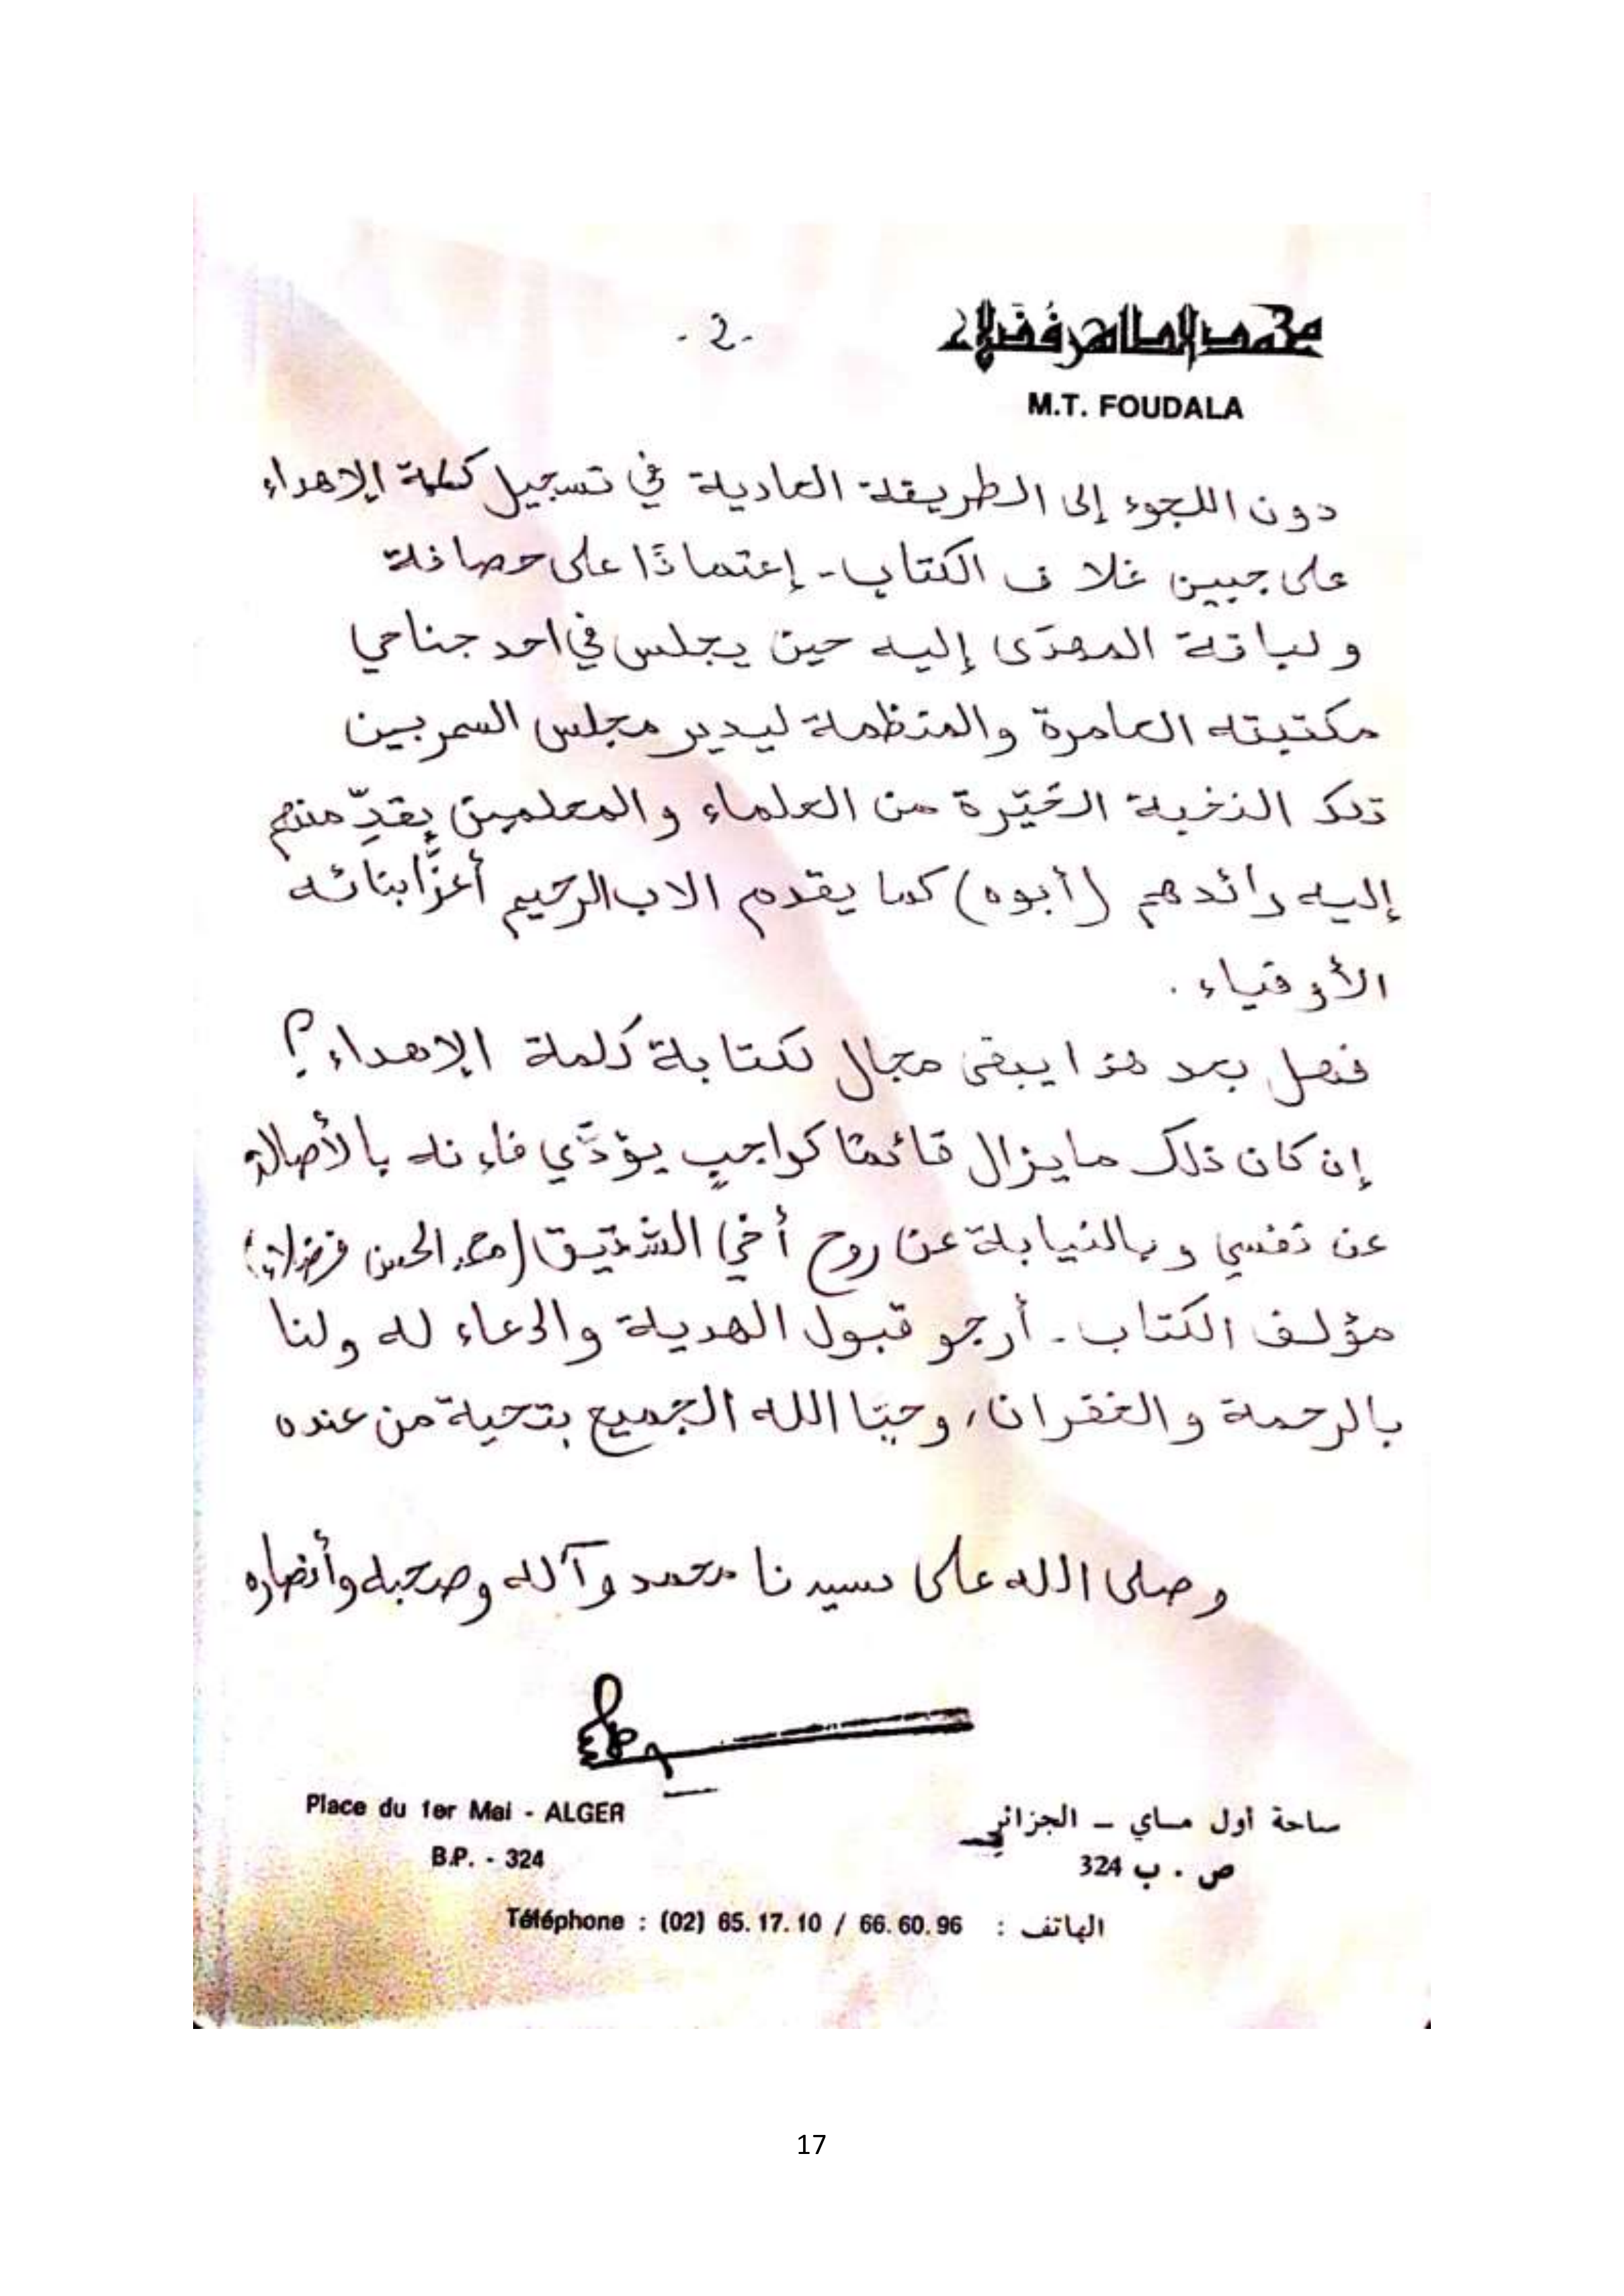 محمد الطاهر فُضَلاء
- 2 -
M.T. FOUDALA
دون اللجوء إلى الطريقة العادية في تسجيل كلمة الإهداء
على جبين غلاف الكتاب - إعتمادًا على حصافة
ولباقة المهدَى إليه حين يجلس في احد جناحي
مكتبته العامرة والمنظمة ليدير مجلس السمر بين
تلك النخبة الخَيّرة من العلماء والمعلمين يقدِّمهم
إليه رائدهم (أبوه) كما يقدم الاب الرحيم أعزَّ ابنائه
الأوفياء .
فهل بعد هذا يبقى مجال لكتابة كلمة الإهداء؟
إن كان ذلك مايزال قائمًا كواجبٍ يؤدَّي فإنه بالأصالة
عن نفسي وبالنيابة عن روح أخي الشقيق (محمد الحسن فضلاء)
مؤلف الكتاب - أرجو قبول الهدية والدعاء له ولنا
بالرحمة والغفران، وحيّا الله الجميع بتحية من عنده
وصلى الله على سيدنا محمد وآله وصحبه وأنصاره
Place du 1er Mai - ALGER
ساحة أول مـاي – الجزائر
B.P. - 324
ص . ب 324
Téléphone : (02) 65.17.10 / 66.60.96 : الهاتف
17